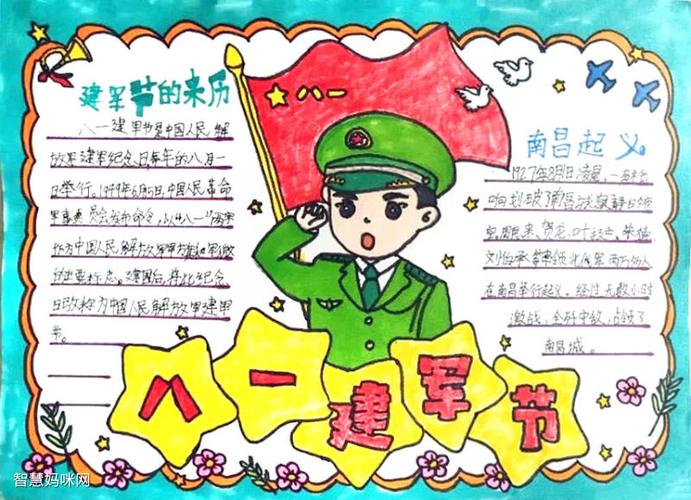 建军节的来历
八一建军节是中国人民解
放军建军纪念日,每年的八月一
日举行。1949年6月15日,中国人民革命
军事委员会发布命令,以“八一”两字
作为中国人民解放军军旗和军徽
的主要标志。建国后,将此纪念
日改称为中国人民解放军建军
节。
八一
南昌起义
1927年8月1日凌晨,一声枪
响划破了南昌城寂静的夜
空,周恩来、贺龙、叶挺、朱德
刘伯承等率领北伐军两万多人
在南昌举行起义。经过无数小时
激战,全歼守敌,占领了
南昌城。
八一建军节
智慧妈咪网